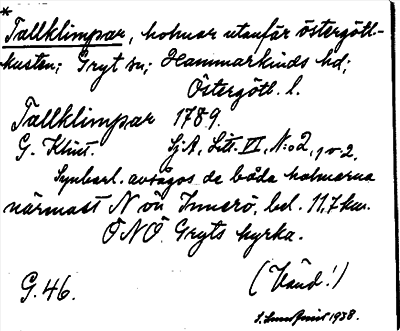 *
Tallklimpar, holmar utanför östergötl-
kusten; Gryt sn; Hammarkinds hd;
Östergötl. l.
Tallklimpar 1789.
G. Klint. Sj.A, Litt. VI, N:o 2, 1 o 2.
Synbarl. avsågos de båda holmarna
närmast N ön Innerö, bel. 11,7 km.
ÖNÖ Gryts kyrka.
G. 46. (Vänd!)
1938.